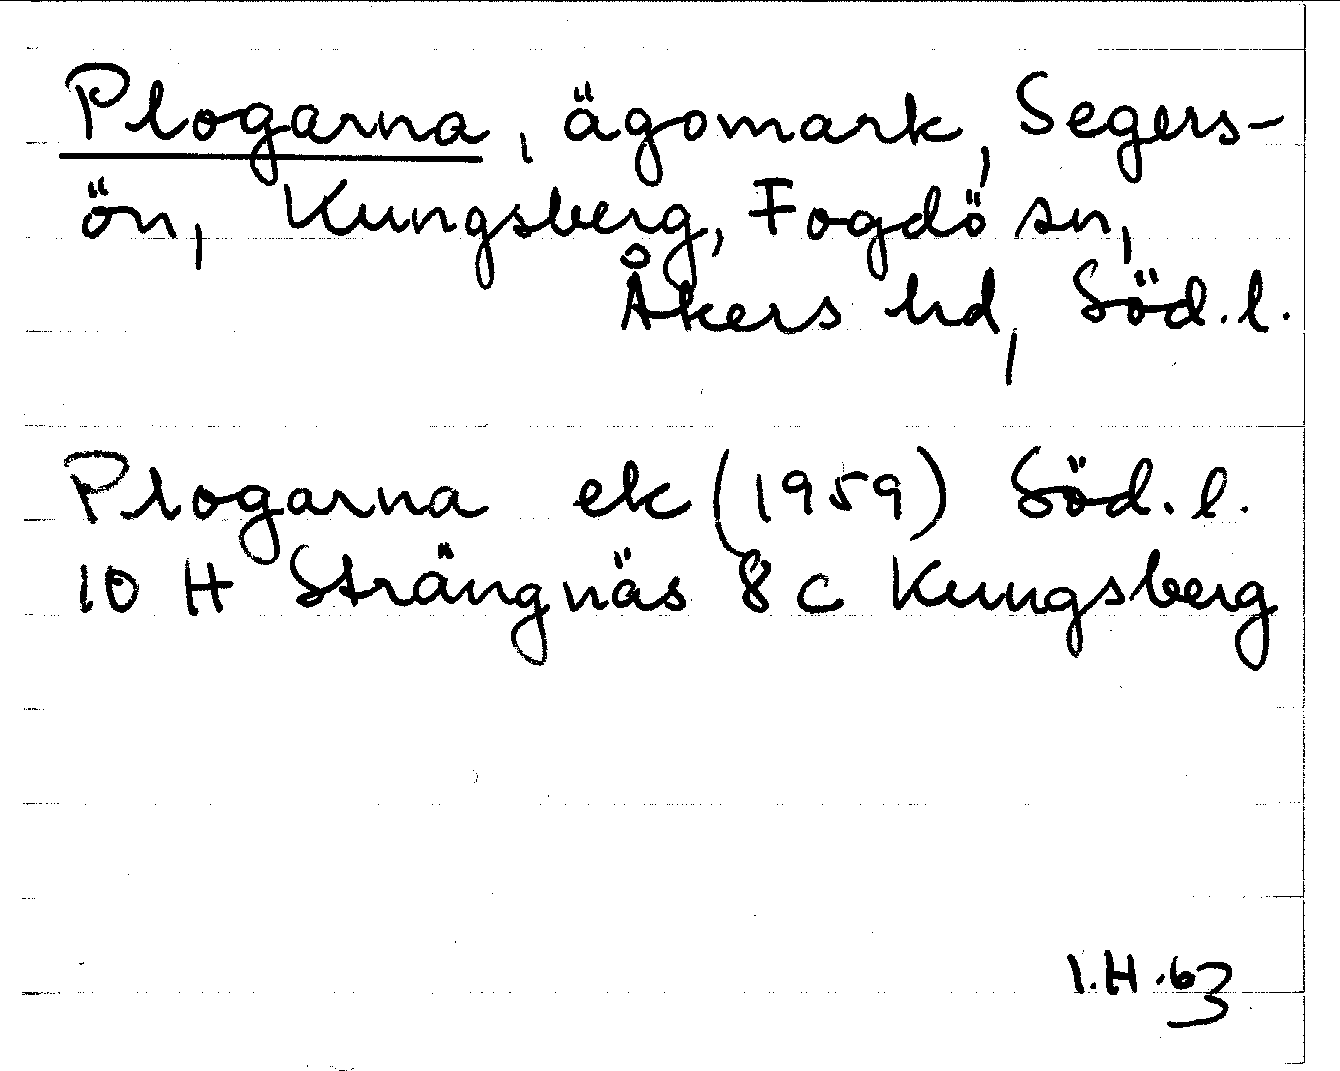 Plogarna, ägomark, Segers-
ön, Kungsberg, Fogdö sn,
Åkers hd, Söd.l.
Plogarna ek (1959) Söd.l.
10 H Strängnäs 8 c Kungsberg
I.H.63